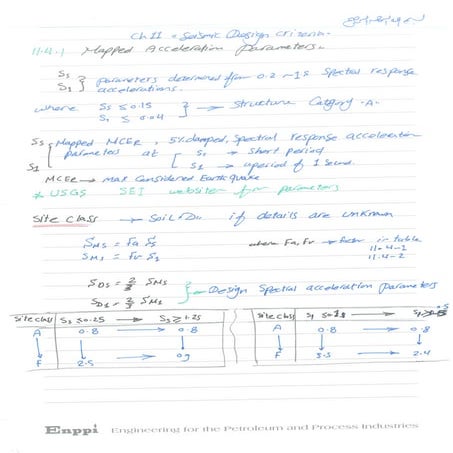 Ch 11 - Seismic Design criteria.
11.4.1 Mapped Acceleration Parameters.
Ss
S1 } parameters determined from 0.2 ~ 1 s Spectral response
accelerations.
where Ss ≤ 0.15
S1 ≤ 0.04 } → Structure Category "A"
Ss, Mapped MCER, 5% damped, Spectral response acceleration
S1 parameters at [ Ss → short period
S1 → a period of 1 second.
MCER → Max Considered Earthquake
* USGS SEI website for parameters
Site Class → Soil "D" if details are unknown
SMS = Fa Ss
SM1 = Fv S1
where Fa, Fv → factor in table
11.4-1
11.4-2
SDS = 2/3 SMS
SD1 = 2/3 SM1 } → Design Spectral acceleration Parameters
Site class Ss ≤ 0.25 → Ss ≥ 1.25
A 0.8 → 0.8
F 2.5 → 0.9
Site class S1 ≤ 0.1 → S1 ≥ 0.5
A 0.8 → 0.8
F 3.5 → 2.4
Enppi Engineering for the Petroleum and Process Industries